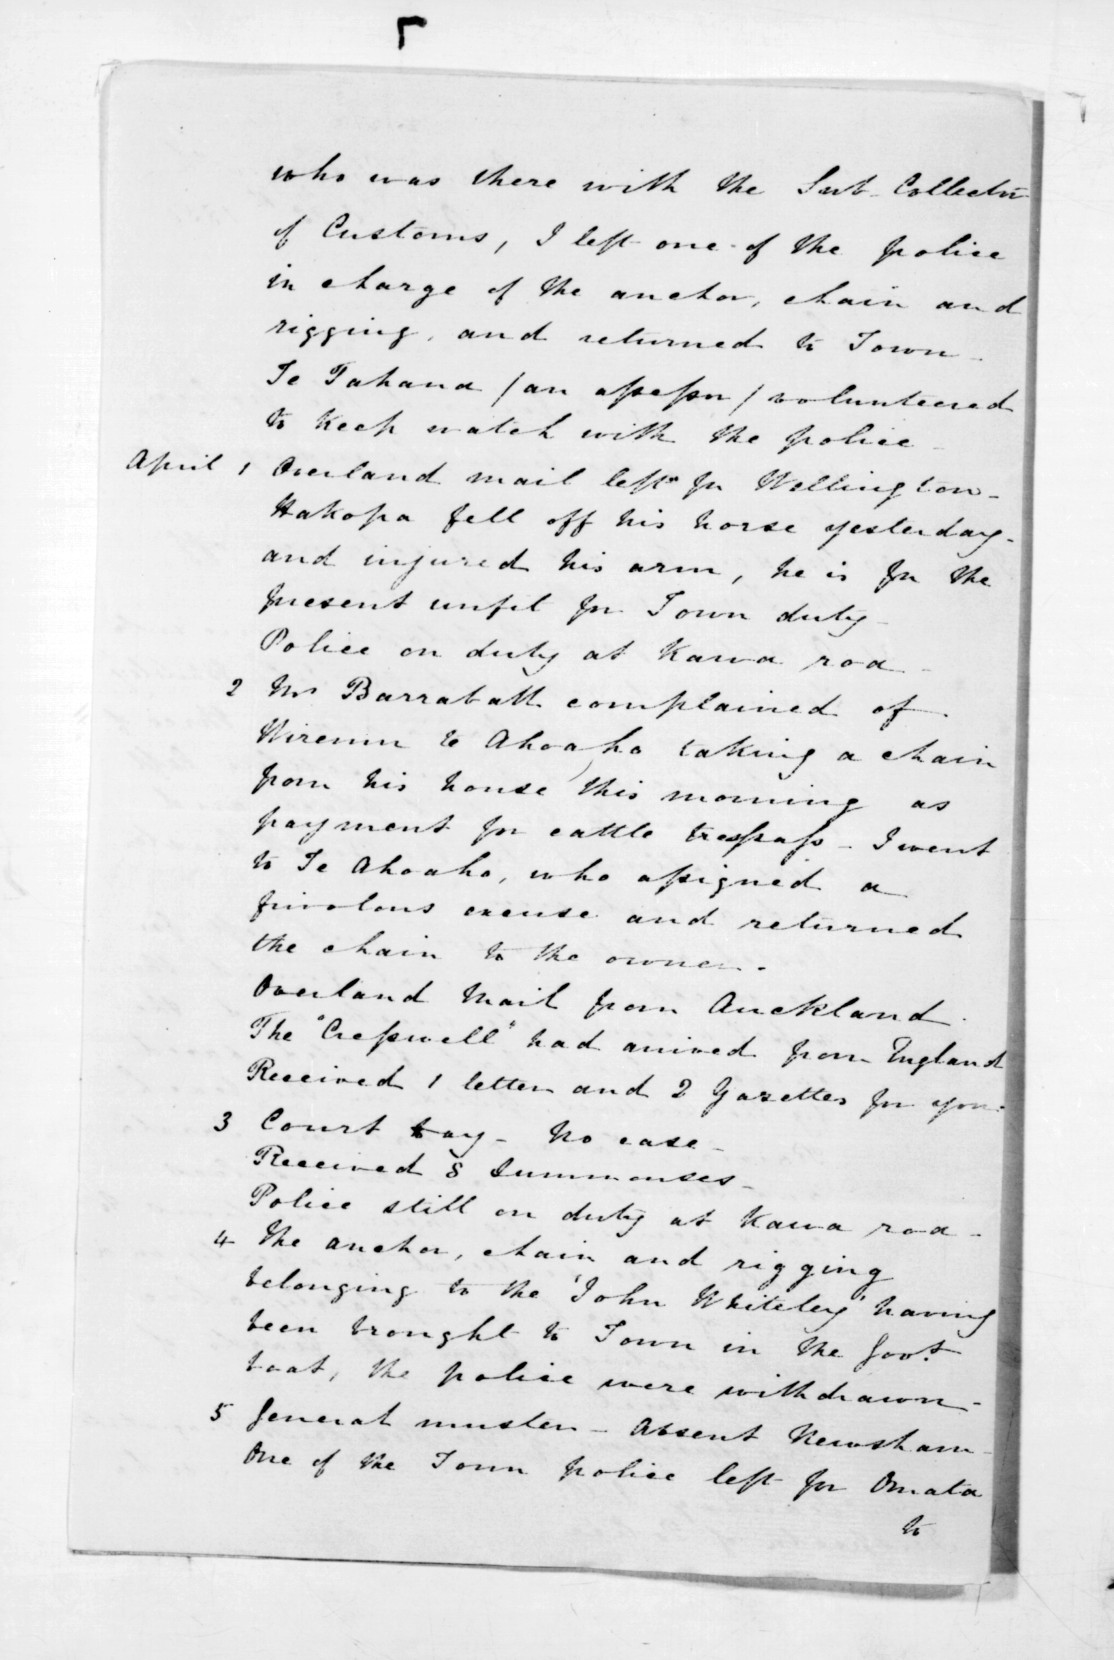 who was there with the Sub-Collector
of Customs, I left one of the police
in charge of the anchor, chain and
rigging, and returned to Town -
Te Tahana (an assessor) volunteered
to keep watch with the police -
April 1 Overland mail left for Wellington -
Hakopa fell off his horse yesterday -
and injured his arm, he is for the
present unfit for Town duty -
Police on duty at Kawa roa -
2 Mr Barraball complained of
Wiremu te Ahoaho taking a chain
from his house this morning as
payment for cattle trespass - I went
to Te Ahoaho, who assigned a
frivolous excuse and returned
the chain to the owner.
Overland Mail from Auckland.
The "Cresswell" had arrived from England
Received 1 letter and 2 Gazettes for you.
3 Court day - No case -
Received 8 Summonses -
Police still on duty at Kawa roa -
4 The anchor, chain and rigging
belonging to the 'John Whiteley' having
been brought to Town in the Govt.
boat, the police were withdrawn -
5 General muster - Absent Newsham -
One of the Town police left for Omata
to